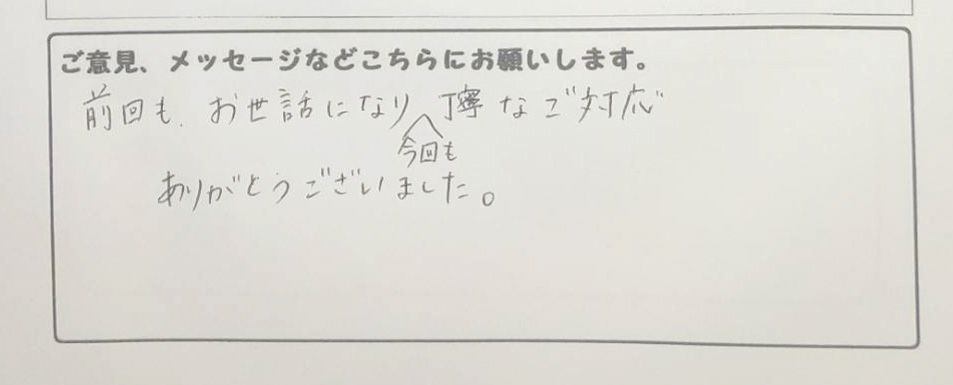 ご意見、メッセージなどこちらにお願いします。
前回も、お世話になり丁寧なご対応
今回も
ありがとうございました。